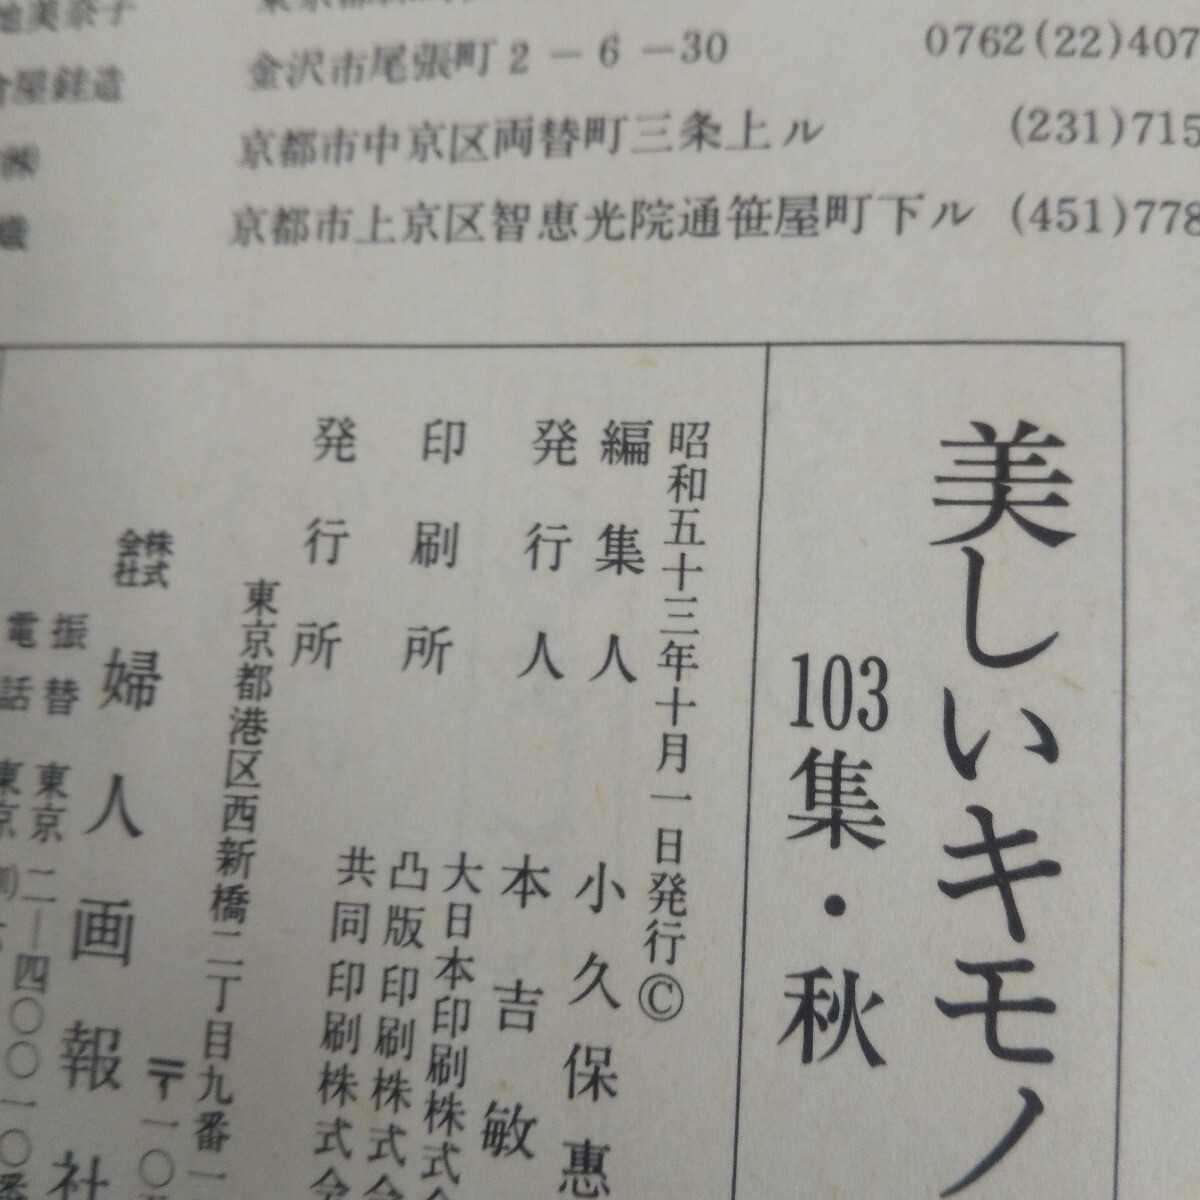 池美奈子
金沢市尾張町2-6-30 0762(22)407
京都市中京区両替町三条上ル (231)715
京都市上京区智恵光院通笹屋町下ル (451)778
美しいキモノ
103集・秋
昭和五十三年十月一日発行©
編集人 小久保惠
発行人 本吉敏
印刷所 大日本印刷株式
凸版印刷株式会
共同印刷株式会
発行所
東京都港区西新橋二丁目九番一
〒一〇
株式会社 婦人画報社
振替 東京 二―四〇〇一〇番
電話 東京